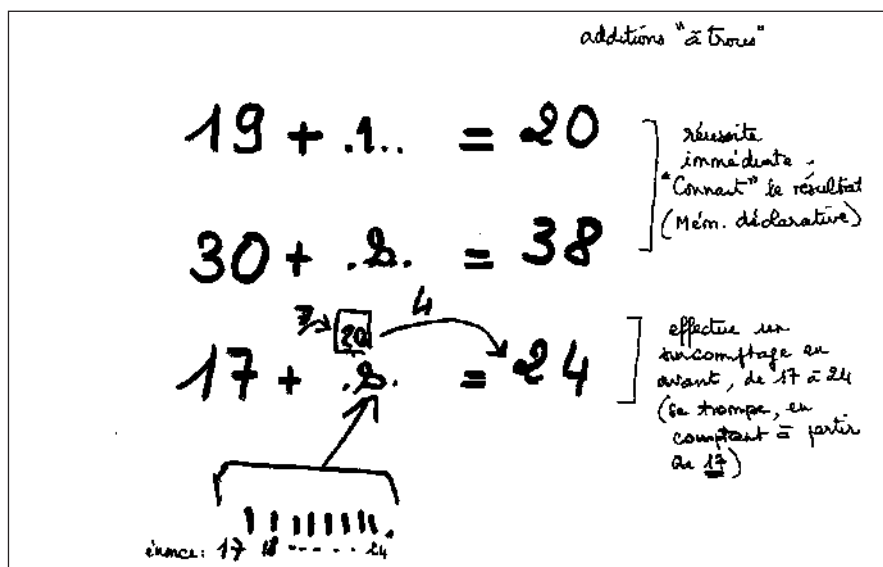 additions "à trous"
19 + .1.. = 20
réussite
immédiate :
"Connait" le résultat
(Mém. déclarative)
30 + .8. = 38
4
3 20
17 + .8. = 24
effectue un
surcomptage en
avant, de 17 à 24
(se trompe, en
comptant à partir
de 17)
énonce : 17 18 ------ 24